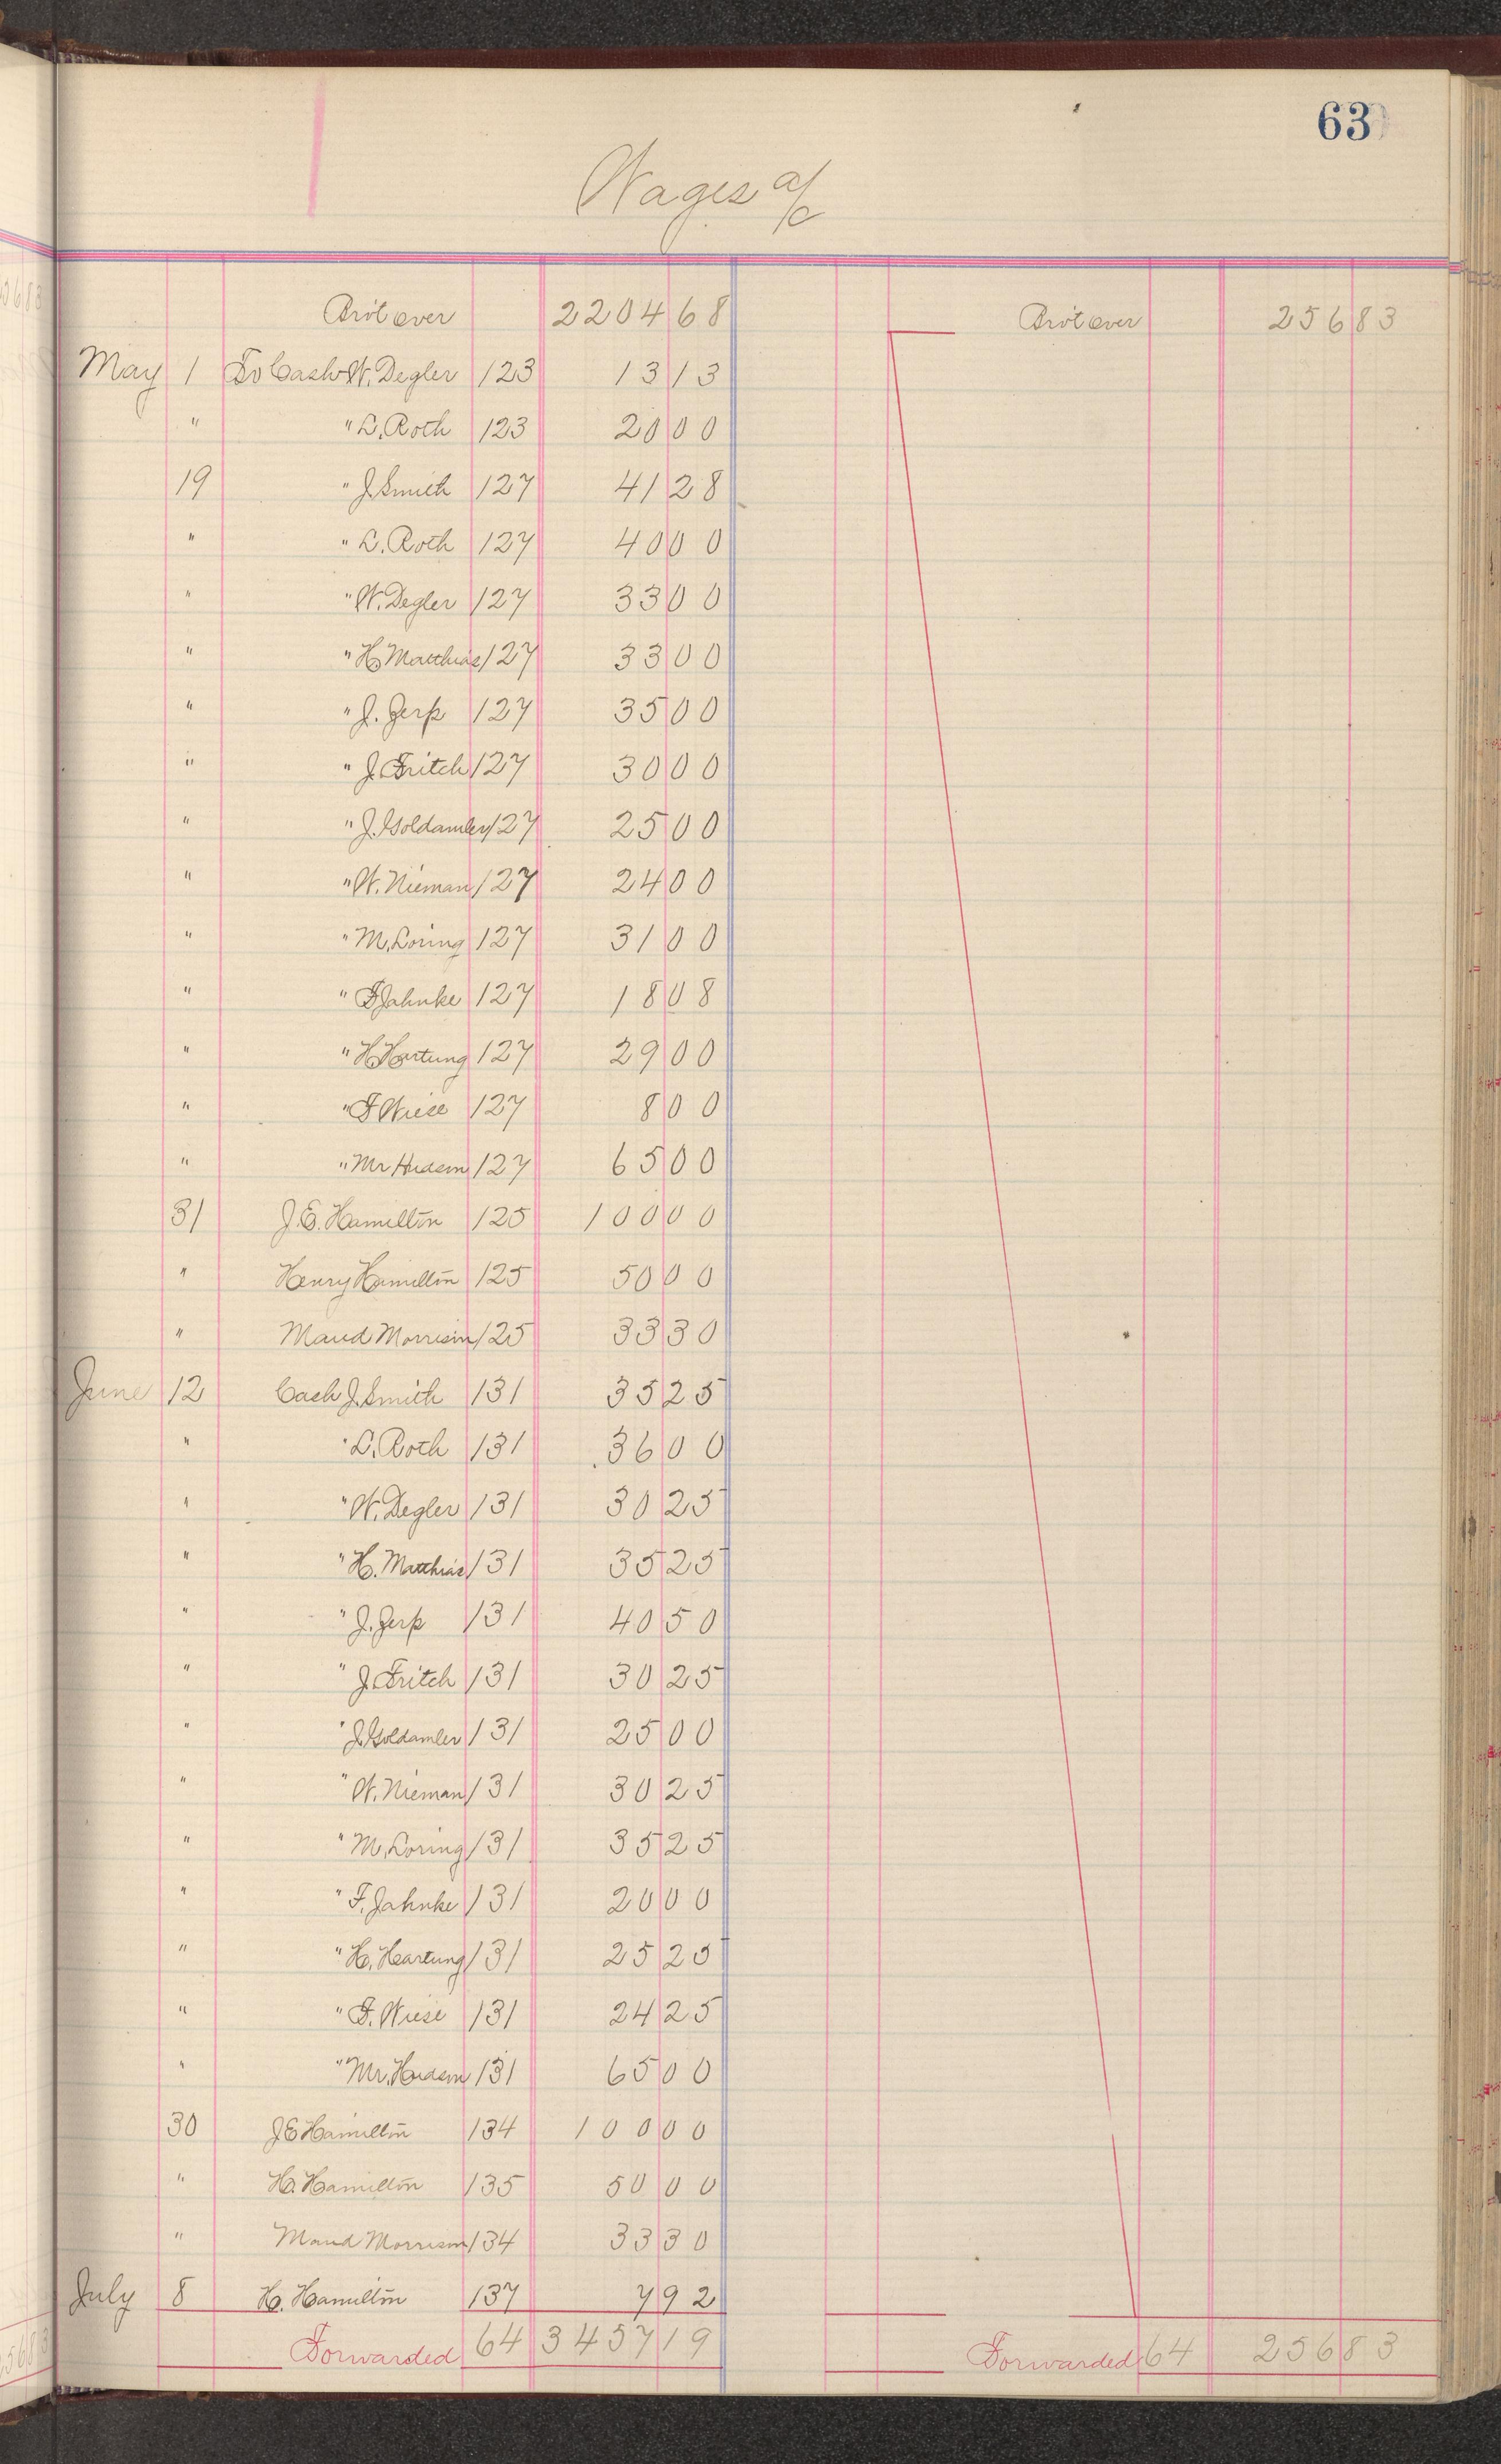 63
Wages a/c
Bro't over 2204 68 Bro't over 256 83
May 1 To Cash W. Degler 123 13 13
" " L. Roth 123 20 00
19 " J. Smith 127 41 28
" " L. Roth 127 40 00
" " W. Degler 127 33 00
" " H. Matthias 127 33 00
" " J. Zerp 127 35 00
" " J. Fritch 127 30 00
" " J. Goldamler 127 25 00
" " W. Nieman 127 24 00
" " M. Loring 127 31 00
" " F Jahnke 127 18 08
" " H Hartung 127 29 00
" " F Wiese 127 8 00
" " Mr Hudson 127 65 00
31 J. E. Hamilton 125 100 00
" Henry Hamilton 125 50 00
" Maud Morrison 125 33 30
June 12 Cash J. Smith 131 35 25
" " L. Roth 131 36 00
" " W. Degler 131 30 25
" " H. Matthias 131 35 25
" " J. Zerp 131 40 50
" " J. Fritch 131 30 25
" " J. Goldamler 131 25 00
" " W. Nieman 131 30 25
" " M. Loring 131 35 25
" " F. Jahnke 131 20 00
" " H. Heartung 131 25 25
" " F. Wiese 131 24 25
" " Mr. Hudson 131 65 00
30 J E Hamilton 134 100 00
" H. Hamilton 135 50 00
" Maud Morrison 134 33 30
July 8 H. Hamilton 137 7 92
Forwarded 64 3457 19 Forwarded 64 256 83